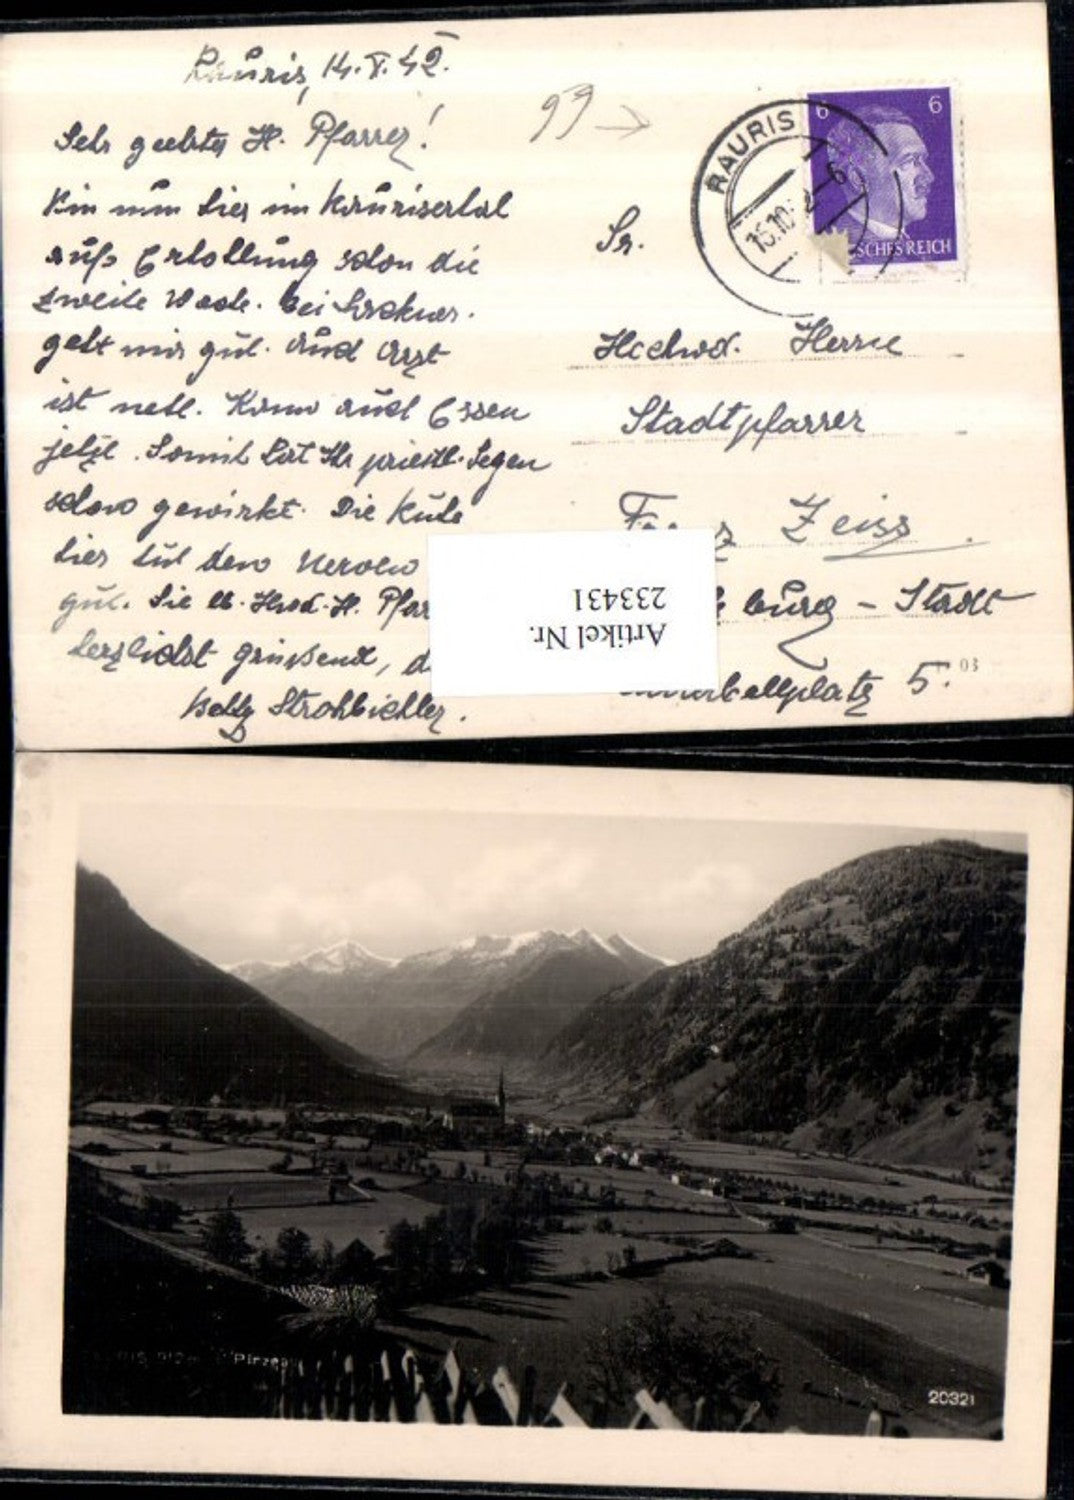 Rauris, 14. X. 42.
Sehr geehrter H. Pfarrer!
Bin nun hier im Raurisertal
aufs Erhollung schon die
zweite Woche. Bei
geht mir gut. und Arzt
ist nett. Kann auch Essen
jetzt. Somit hat Ihr priestl. Segen
schon gewirkt. Die Ruhe
hier tut den Nerven
gut. Sie H. Pfar
herzlichst grüssend, d
Betty Strohbichler.
99 →
RAURIS
15.10.42-6
6 6
SCHES REICH
Sr.
Hochwd. Herrn
Stadtpfarrer
Fr z Zeiss.
burg - Stadt
bellplatz 5.
03
Artikel Nr.
233431
20321